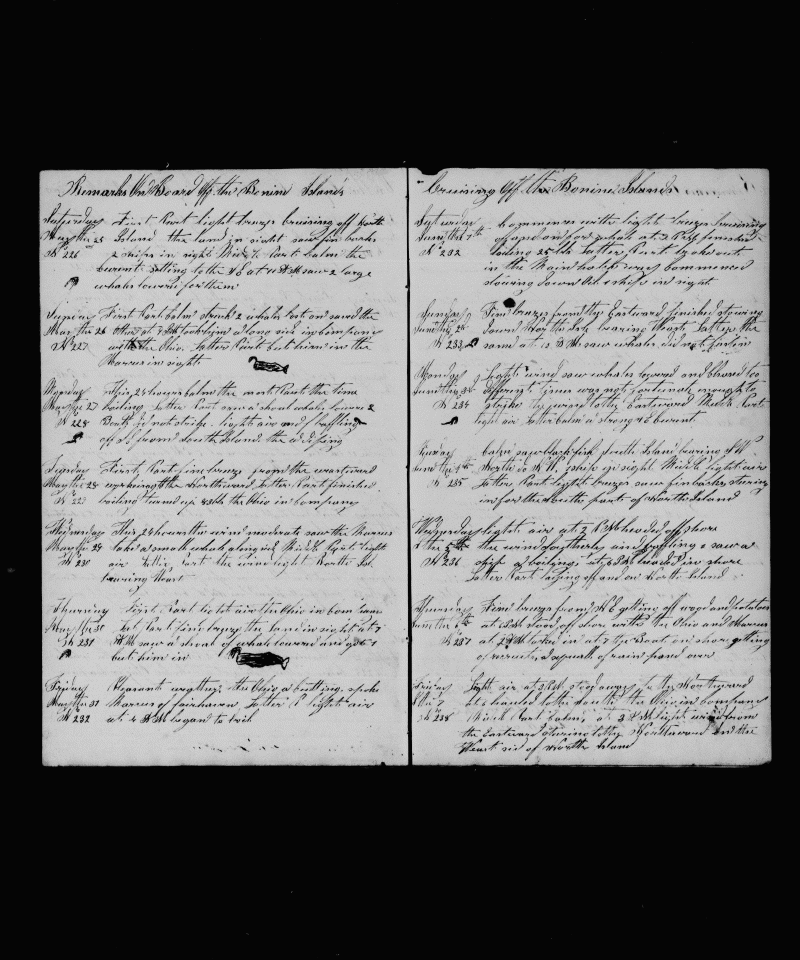 Remarks On Board Off the Bonin Islands
Saturday First Part light breeze cruising off South
May the 25 Island the land in sight saw fin backs
No 226 2 ships in sight Middle Part calm the
current setting to the at 4 PM saw 2 large
whales lowered for them
Sunday First Part calm struck 2 whales lost one saved the
May the 26 other at 7 PM took him a long side in company
No 227 with the Ohio Latter Part cut him in the
Marcus in sight
Monday This 24 hours calm the most Part the time
May the 27 boiling Latter Part saw a shoal whales lowered 2
No 228 Boats did not strike light air and baffling
off from South Island the
Tuesday First Part fine breeze from the eastward
May the 28 working to the Northward Latter Part finished
No 229 boiling turned up the Ohio in company
Wednesday This 24 hours the wind moderate saw the Marcus
May the 29 take a small whale along side Middle Part light
No 230 air Latter Part the wind light North Isl
bearing West
Thursday First Part light air the Ohio in company
May the 30 Lat Part fine breeze the land in sight at 7
No 231 AM saw a shoal of whales lowered and got 1
cut him in
Friday Pleasant weather the Ohio a cutting spoke
May the 31 Marcus of fairhaven Latter P light air
No 232 at 4 AM began to boil
Cruising Off the Bonin Islands
Saturday Commences with light breeze cruising
June the 1th up and down for whales at 2 PM finished
No 232 boiling Latter Part broke out
in the Main hold and commenced
stowing down Oil 2 ships in sight
Sunday Fine breeze from the Eastward finished stowing
June the 2d down North Isl bearing West Latter the
No 233 same at 12 M saw whales did not fasten
Monday Light wind saw whales lowered and chased to
June the 3d different times was not fortunate enough to
No 234 strike the wind to the Eastward Middle Part
light air Latter calm a strong current
Tuesday Calm saw blackfish South Island bearing SW
June the 4th North NW 1 ship in sight Middle light air
No 235 Latter Part light breeze saw finbacks steering
in for the South part of North Island
Wednesday light air at 2 PM headed off shore
the 5th the wind southerly and baffling saw a
No 236 ship a boiling at 7 PM headed in shore
Latter Part laying off and on North Island
Thursday Fine breeze from NE getting off wood and potatoes
June the 6th at PM stood off shore with the Ohio and Marcus
No 237 at 2 AM tacked in at 7 the Boat on shore getting
of recruits a squall of rain passed over
Friday Light air at 3 PM stood away to the Northward
the 7 at hauled to the South the Ohio in company
No 238 Middle Part calm at 3 AM light wind from
the Eastward steering to the Northward and the
West side of North Island